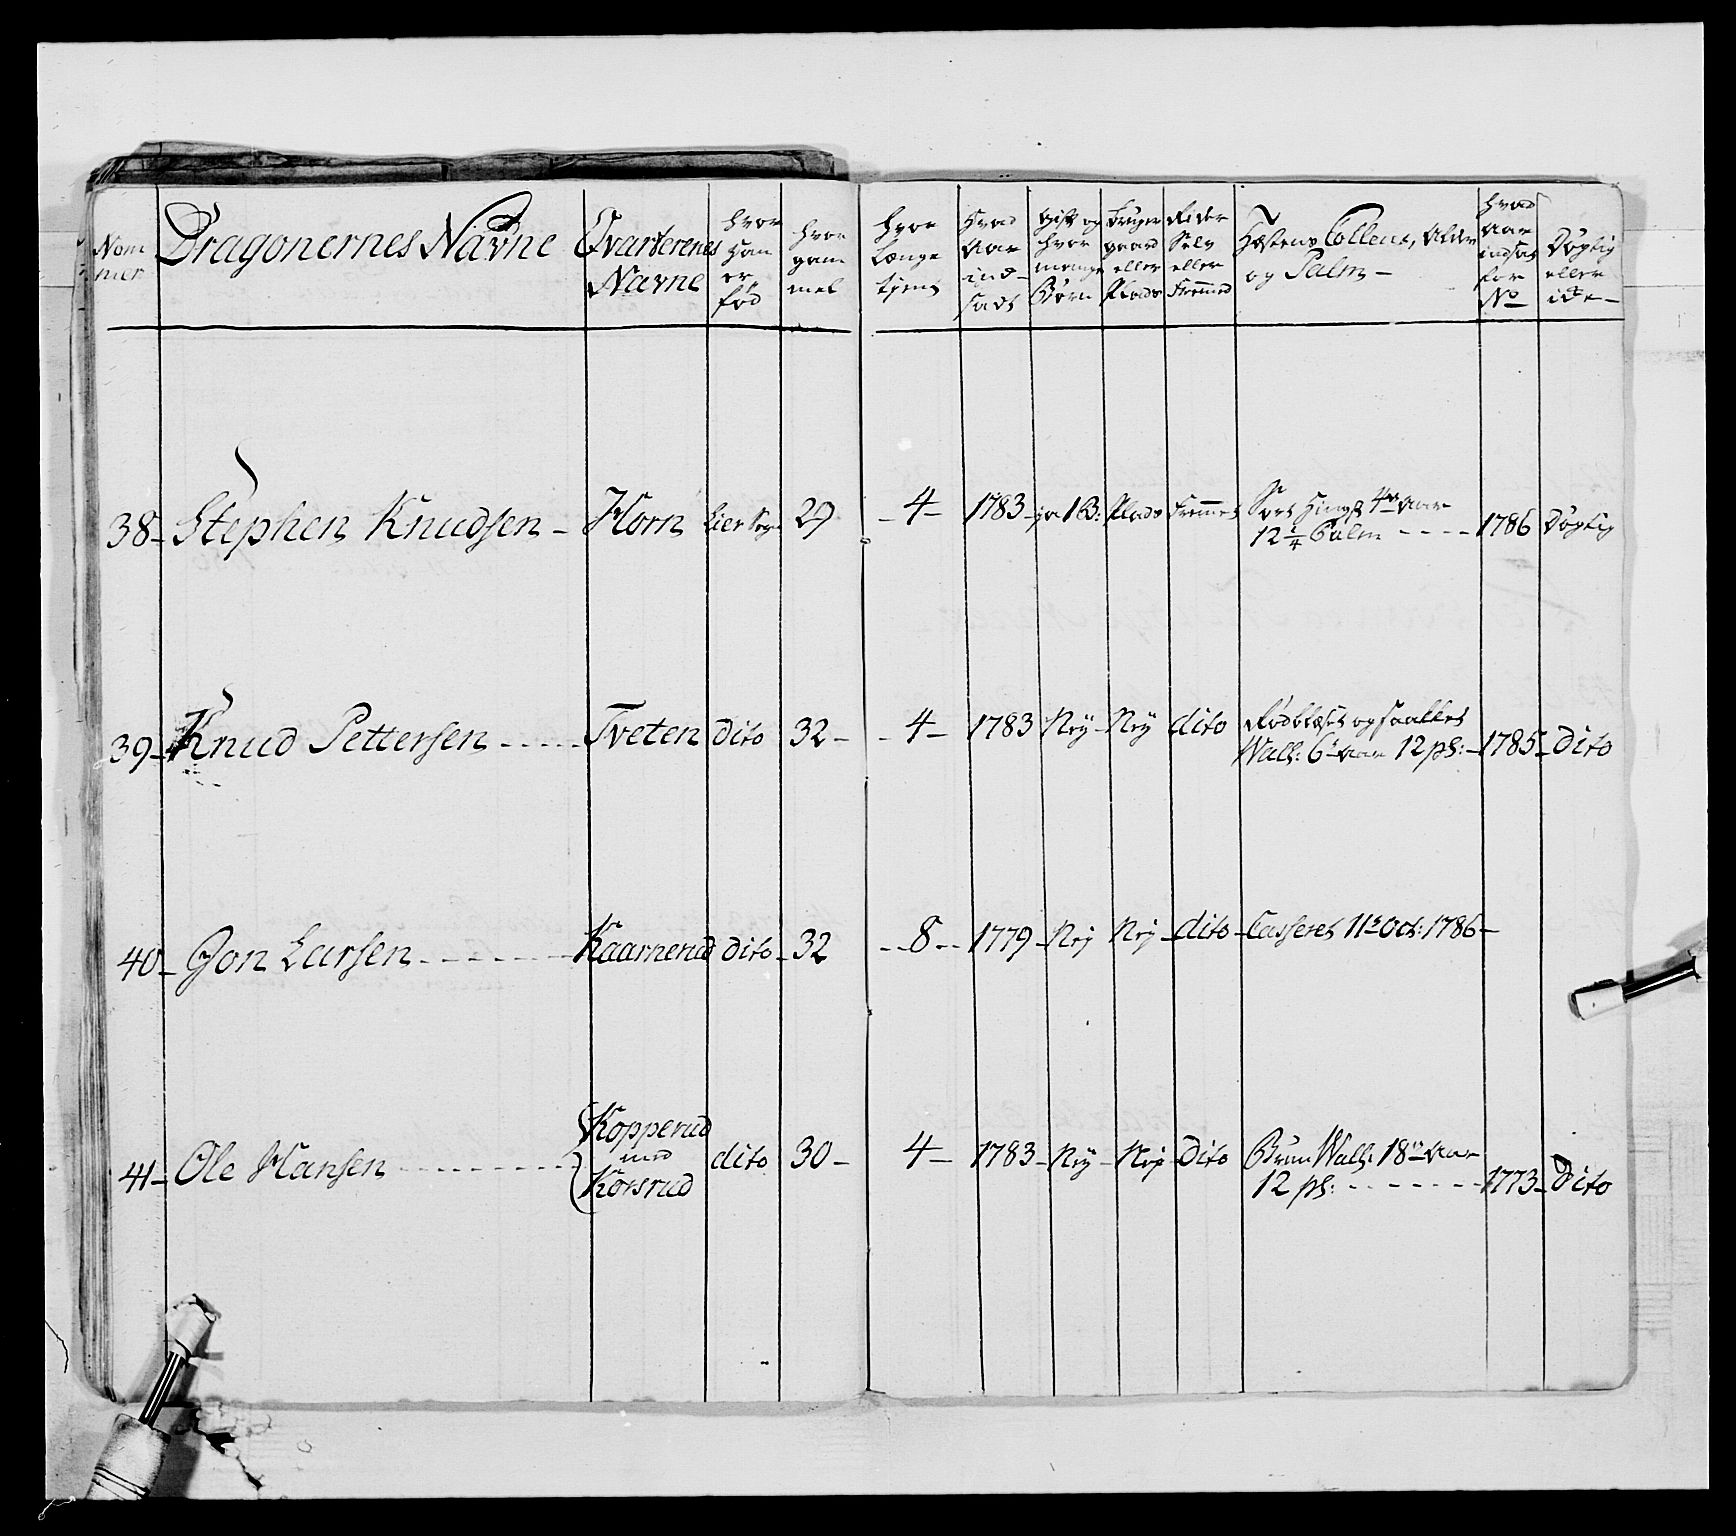 Nom
mer
Dragonernes Navne
Qvarterenes
Navne
hvor
han
er
fød
hvor
gam
mel
hvor
længe
tjent
hvad
Aar
ind-
sadt
Gift og
hvor
mange
Børn
bruger
gaard
eller
Plads
Rider
Selv
eller
Fremmed
Hæstens Colleur, Alder
og Palm-
hvad
Aar
indsat
for
No
Døgtig
eller
icke-
38- Stephen Knudsen - Horn Lier Sogn 29 - 4 - 1783 - ja 1 B: Plads Fremmed Sort Hingst 4re Aar
12 1/4 Palm - - - - 1786 Døgtig
39- Knud Pettersen - - - - - Tveten Dito 32 - - 4 - 1783 Nej - Nej dito Rødblaset og
Wall: 6 Aar 12 pl: - 1785 - Dito
40- Jon Larsen - - - - - - Kaarnerud dito - 32 - - 8 - - 1779 - Nej Nej - dito - Casseret 11te Oct: 1786 -
41- Ole Hansen - - - - - - - - - Kopperud
med
Korsrud
dito 30 - 4 - 1783 - Nej - Nej - Dito Bruun Wall: 18 Aar
12 pl: - - - - - - - 1773 - Dito